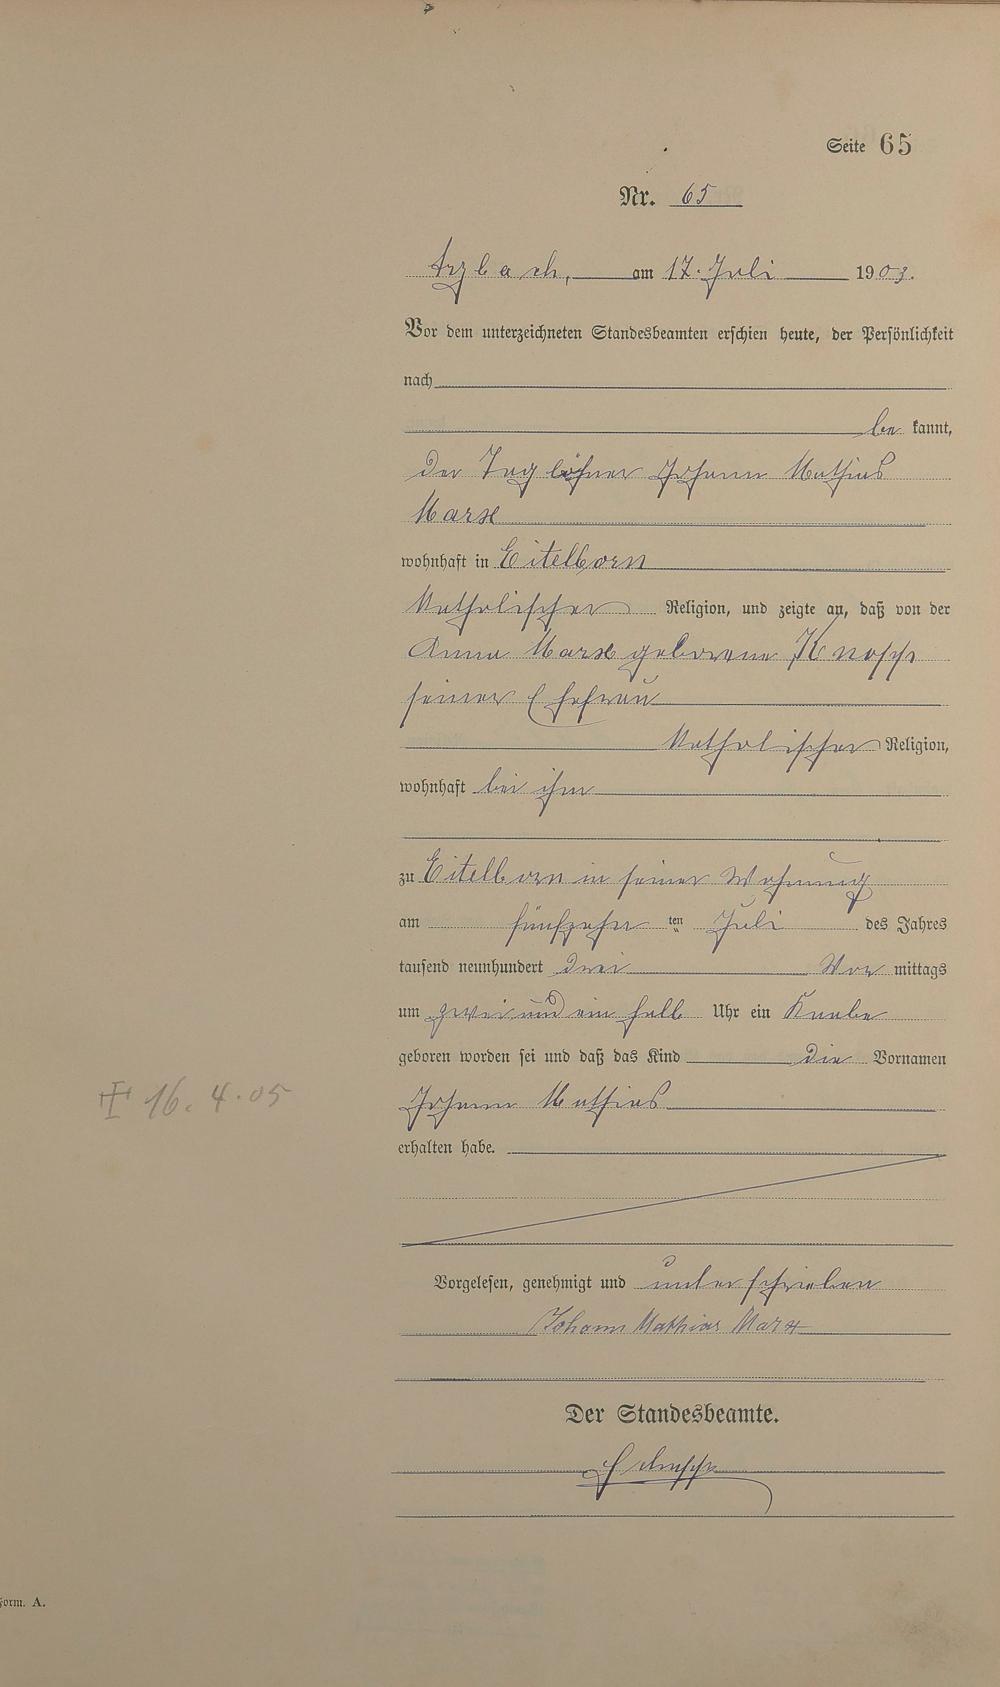 Seite 65
Nr. 65
Arzbach, am 17. Juli 1903.
Vor dem unterzeichneten Standesbeamten erschien heute, der Persönlichkeit
nach
be kannt,
der Taglöhner Johann Mathias
Marx
wohnhaft in Eitelborn
katholischer Religion, und zeigte an, daß von der
Anna Marx geborene Knopp
seiner Ehefrau
katholischer Religion,
wohnhaft bei ihm
zu Eitelborn in seiner Wohnung
am fünfzehn ten Juli des Jahres
tausend neunhundert drei Vor mittags
um zwei und ein halb Uhr ein Knabe
geboren worden sei und daß das Kind die Vornamen
✝ 16. 4. 05
Johann Mathias
erhalten habe.
Vorgelesen, genehmigt und unterschrieben
Johann Mathias Marx
Der Standesbeamte.
Form. A.